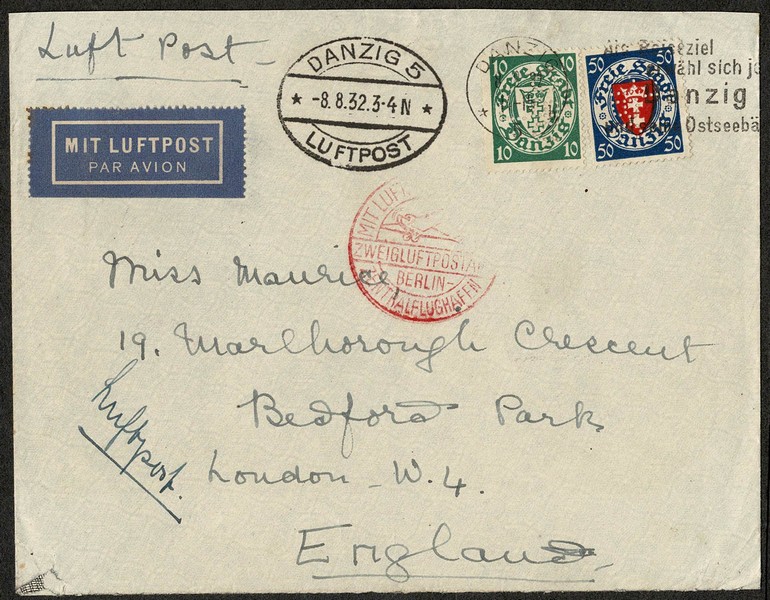 Luft Post
DANZIG 5
-8.8.32.3-4N
LUFTPOST
DANZIG
10 10
Freie Stadt
Danzig
10 10
50 50
Freie Stadt
Danzig
50 50
Als Reiseziel
wähl sich je
Danzig
Ostseebä
MIT LUFTPOST
PAR AVION
MIT LUF
ZWEIGLUFTPOSTA
BERLIN-
ZENTRALFLUGHAFEN
Miss Maurice,
19. Marlborough Crescent
Bedford Park
London - W.4.
England
Luftpost.